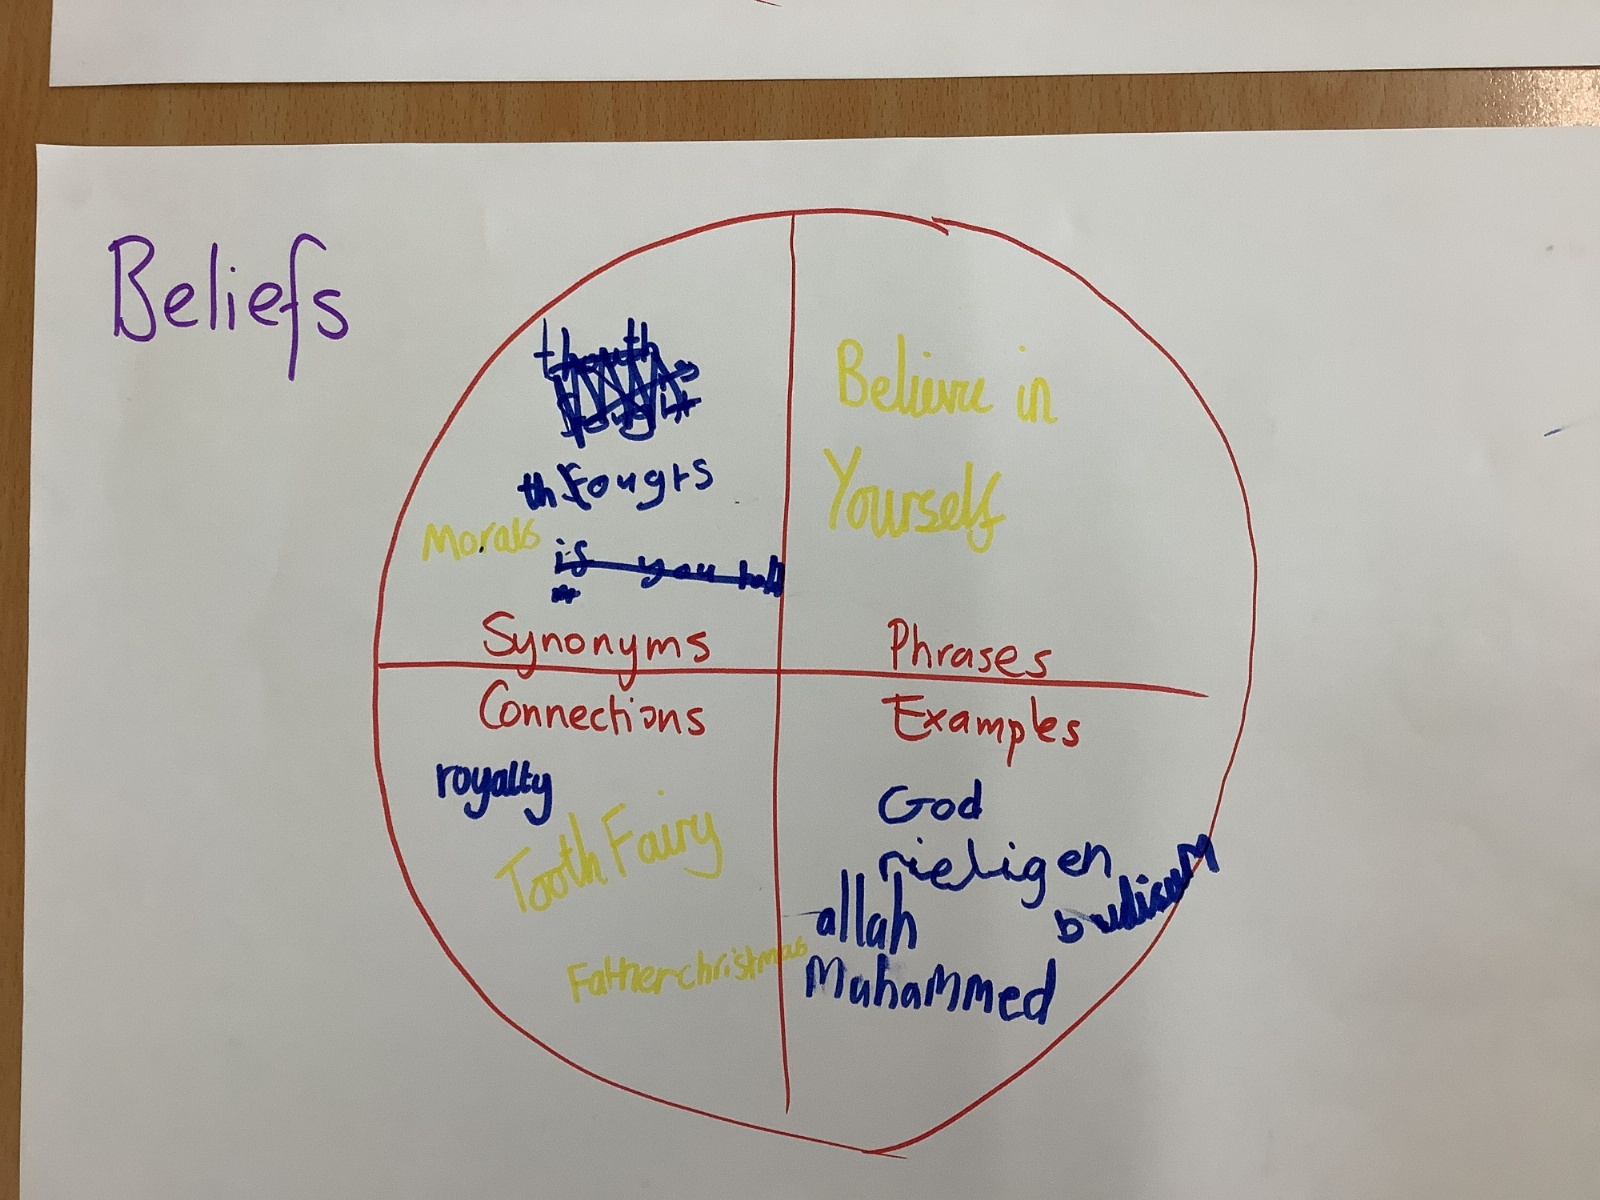 Beliefs
Morals
Synonyms
Believe in
Yourself
Phrases
Connections
royalty
Tooth Fairy
Fatherchristmas
Examples
God
rieligen
budisum
allah
Muhammed